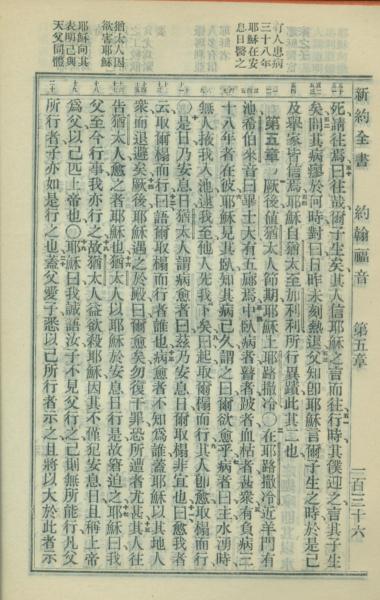 新約全書 約翰福音 第五章 二百三十六
有人患病
三十八年
耶穌在安
息日醫之
猶太人因
欲害耶穌
耶穌向其
表明己與
天父同體
死請往焉曰往哉爾子生矣其人信耶穌之言而往行時其僕迎之言其子生
矣問其病瘳於何時對曰日昨未刻熱退父知卽耶穌言爾子生之時於是己
及舉家皆信焉耶穌自猶太至加利利所行異蹟此其二也
第五章 厥後値猶太人節期耶穌上耶路撒冷〇在耶路撒冷近羊門有
池希伯來音曰畢士大有五廊焉中臥病者瞽者跛者血枯者甚衆有負病三
十八年者在彼耶穌見其臥知其病已久謂之曰爾欲愈乎病者曰主水湧時
無人掖我入池逮我至他人先我下矣曰起取爾榻而行其人卽愈取榻而行
〇是日乃安息日猶太人謂病愈者曰兹乃安息日爾取榻非宜也曰愈我者
云取爾榻而行曰語爾取榻而行者誰也病愈者不知爲誰蓋耶穌以其地人
衆而退避矣厥後耶穌遇之於殿曰爾愈矣勿復干罪恐所遭者尤甚其人往
告猶太人愈之者耶穌也猶太人以耶穌於安息日行是故窘迫之耶穌曰我
父至今行事我亦行之故猶太人益欲殺耶穌因其不僅犯安息日且稱上帝
爲父以己匹上帝也〇耶穌曰我誠語汝子不見父行之己則無所能行凡父
所行者子亦如是行之也蓋父愛子悉以己所行者示之且將以大於此者示